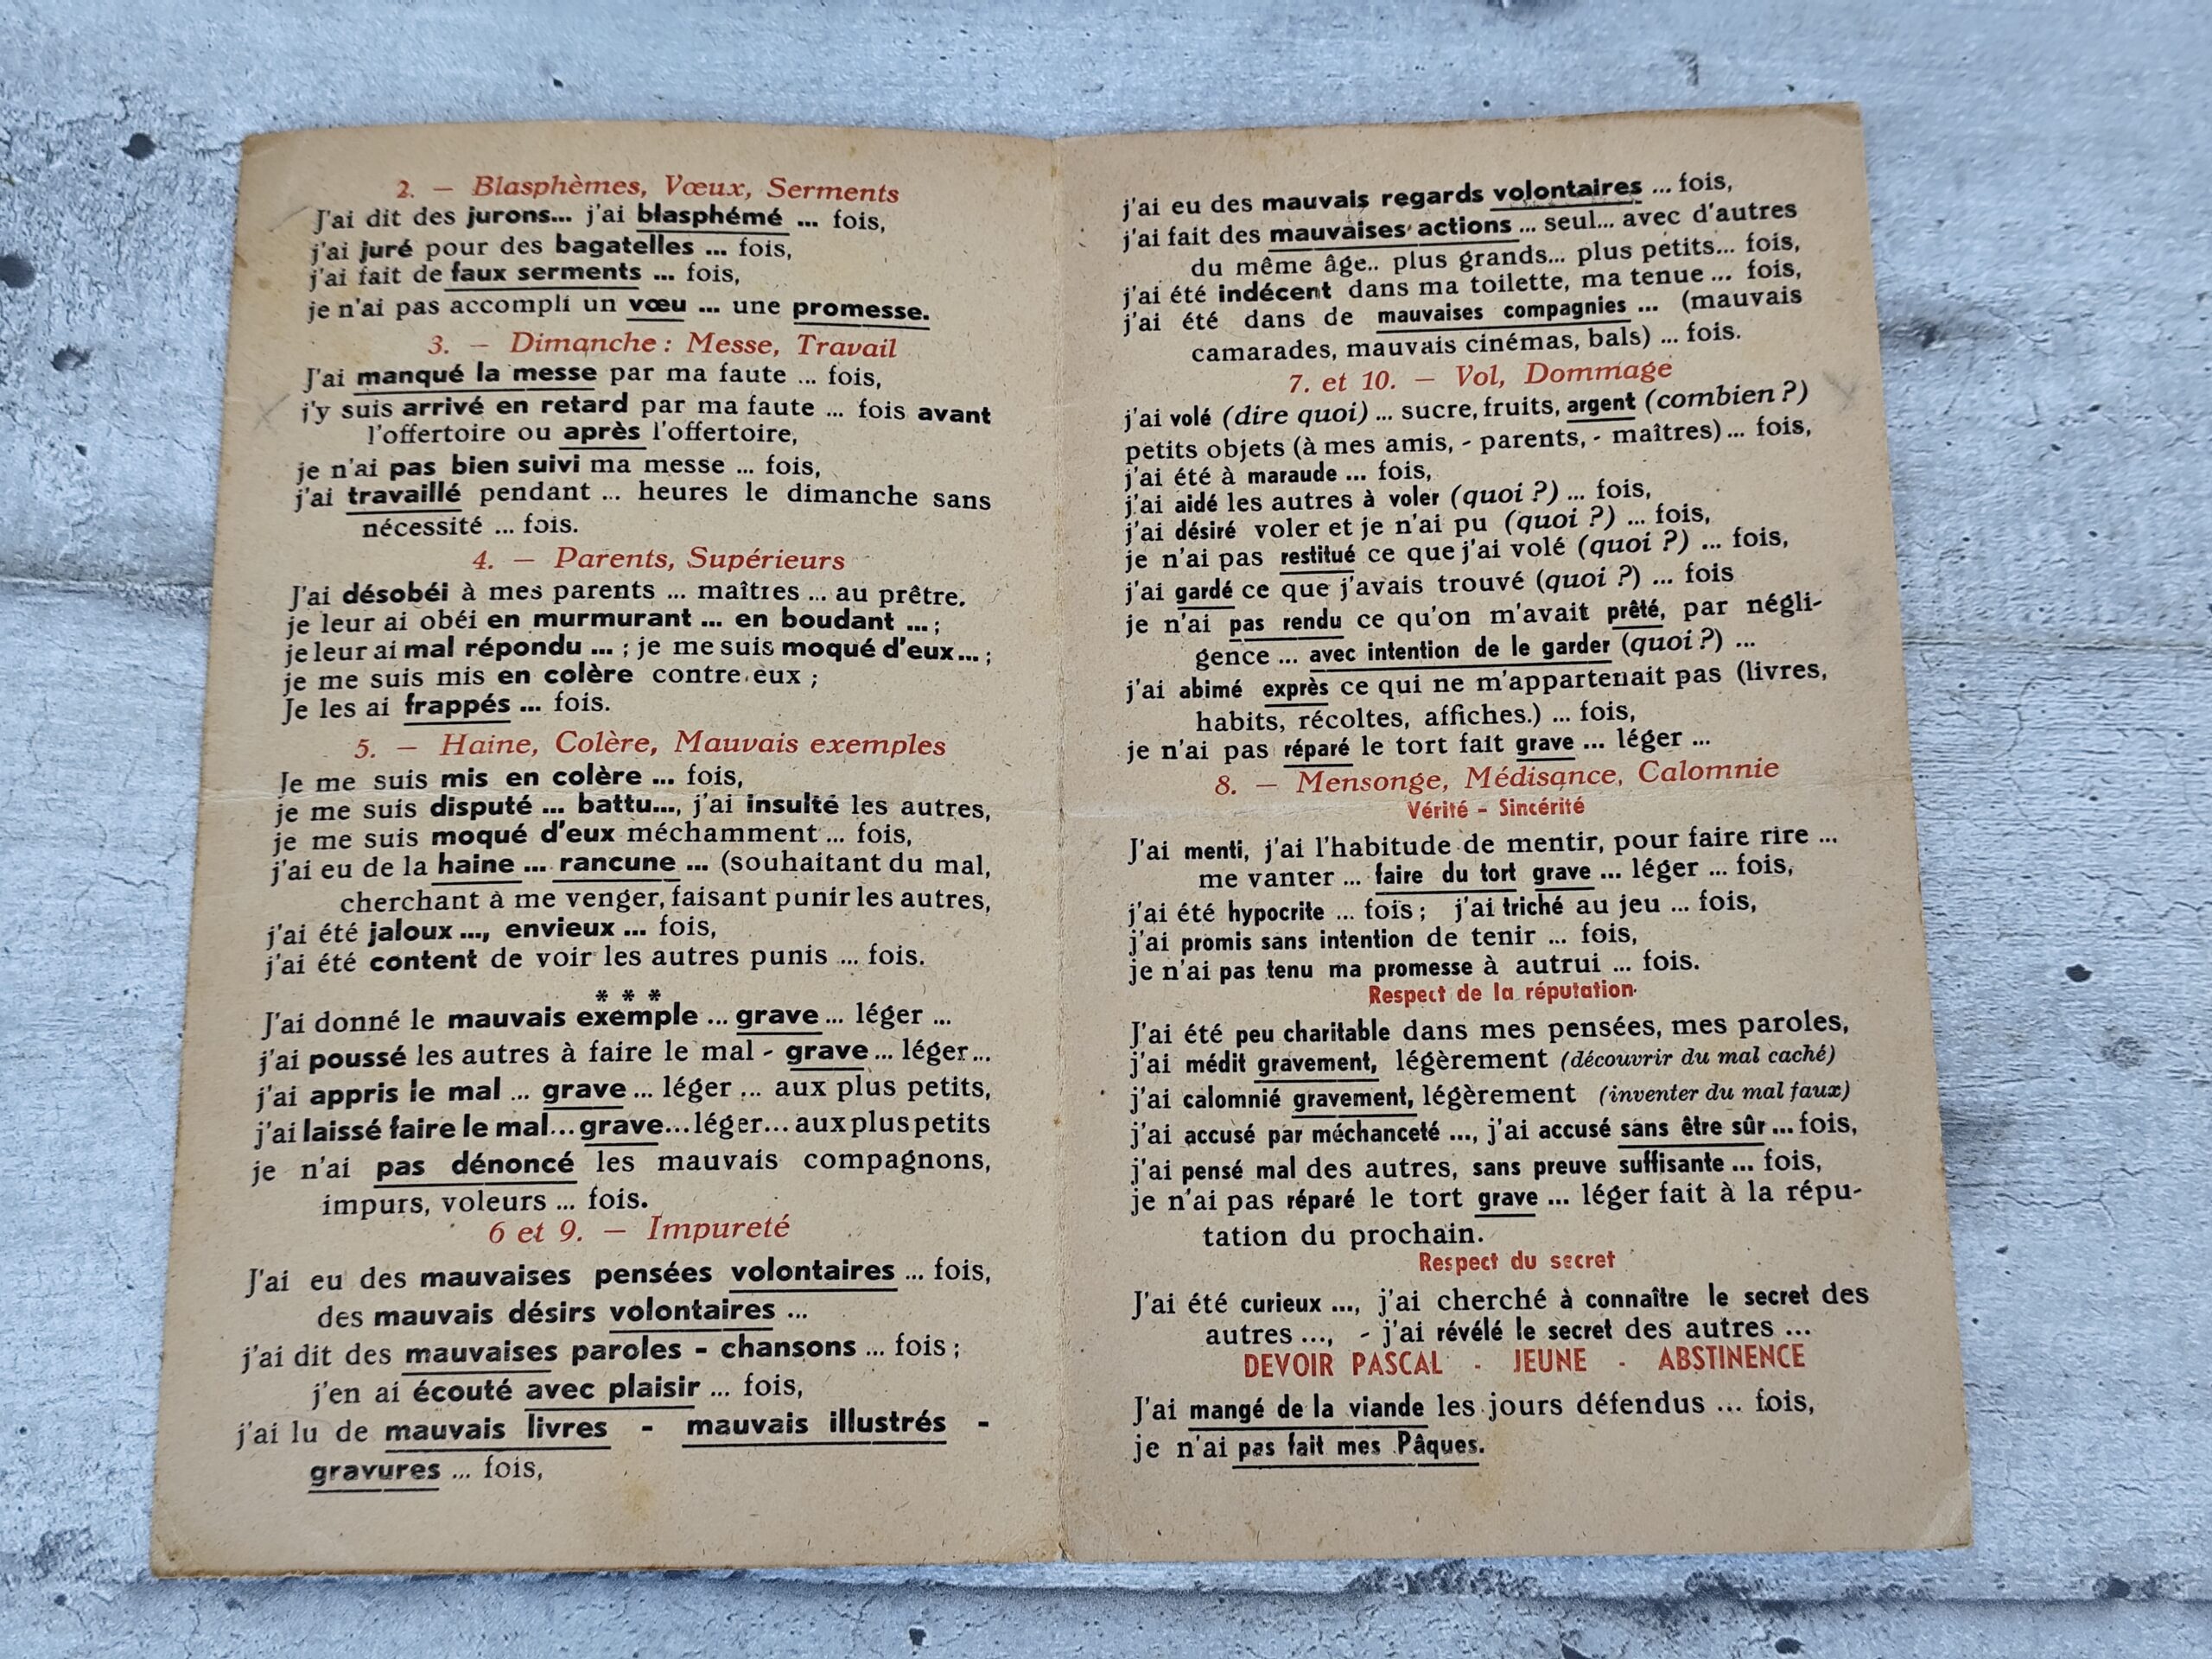 2. — Blasphèmes, Vœux, Serments
J'ai dit des jurons... j'ai blasphémé ... fois,
j'ai juré pour des bagatelles ... fois,
j'ai fait de faux serments ... fois,
je n'ai pas accompli un vœu ... une promesse.
3. — Dimanche : Messe, Travail
J'ai manqué la messe par ma faute ... fois,
j'y suis arrivé en retard par ma faute ... fois avant
l'offertoire ou après l'offertoire,
je n'ai pas bien suivi ma messe ... fois,
j'ai travaillé pendant ... heures le dimanche sans
nécessité ... fois.
4. — Parents, Supérieurs
J'ai désobéi à mes parents ... maîtres ... au prêtre.
je leur ai obéi en murmurant ... en boudant ... ;
je leur ai mal répondu ... ; je me suis moqué d'eux ... ;
je me suis mis en colère contre eux ;
Je les ai frappés ... fois.
5. — Haine, Colère, Mauvais exemples
Je me suis mis en colère ... fois,
je me suis disputé ... battu..., j'ai insulté les autres,
je me suis moqué d'eux méchamment ... fois,
j'ai eu de la haine ... rancune ... (souhaitant du mal,
cherchant à me venger, faisant punir les autres,
j'ai été jaloux ..., envieux ... fois,
j'ai été content de voir les autres punis ... fois.
* * *
J'ai donné le mauvais exemple ... grave ... léger ...
j'ai poussé les autres à faire le mal - grave ... léger ...
j'ai appris le mal ... grave ... léger ... aux plus petits,
j'ai laissé faire le mal... grave... léger... aux plus petits
je n'ai pas dénoncé les mauvais compagnons,
impurs, voleurs ... fois.
6 et 9. — Impureté
J'ai eu des mauvaises pensées volontaires ... fois,
des mauvais désirs volontaires ...
j'ai dit des mauvaises paroles - chansons ... fois ;
j'en ai écouté avec plaisir ... fois,
j'ai lu de mauvais livres - mauvais illustrés -
gravures ... fois,
j'ai eu des mauvais regards volontaires ... fois,
j'ai fait des mauvaises actions ... seul... avec d'autres
du même âge.. plus grands... plus petits... fois,
j'ai été indécent dans ma toilette, ma tenue ... fois,
j'ai été dans de mauvaises compagnies ... (mauvais
camarades, mauvais cinémas, bals) ... fois.
7. et 10. — Vol, Dommage
j'ai volé (dire quoi) ... sucre, fruits, argent (combien ?)
petits objets (à mes amis, - parents, - maîtres) ... fois,
j'ai été à maraude ... fois,
j'ai aidé les autres à voler (quoi ?) ... fois,
j'ai désiré voler et je n'ai pu (quoi ?) ... fois,
je n'ai pas restitué ce que j'ai volé (quoi ?) ... fois,
j'ai gardé ce que j'avais trouvé (quoi ?) ... fois
je n'ai pas rendu ce qu'on m'avait prêté, par négli-
gence ... avec intention de le garder (quoi ?) ...
j'ai abimé exprès ce qui ne m'appartenait pas (livres,
habits, récoltes, affiches.) ... fois,
je n'ai pas réparé le tort fait grave ... léger ...
8. — Mensonge, Médisance, Calomnie
Vérité - Sincérité
J'ai menti, j'ai l'habitude de mentir, pour faire rire ...
me vanter ... faire du tort grave ... léger ... fois,
j'ai été hypocrite ... fois ; j'ai triché au jeu ... fois,
j'ai promis sans intention de tenir ... fois,
je n'ai pas tenu ma promesse à autrui ... fois.
Respect de la réputation
J'ai été peu charitable dans mes pensées, mes paroles,
j'ai médit gravement, légèrement (découvrir du mal caché)
j'ai calomnié gravement, légèrement (inventer du mal faux)
j'ai accusé par méchanceté ..., j'ai accusé sans être sûr ... fois,
j'ai pensé mal des autres, sans preuve suffisante ... fois,
je n'ai pas réparé le tort grave ... léger fait à la répu-
tation du prochain.
Respect du secret
J'ai été curieux ..., j'ai cherché à connaître le secret des
autres ..., - j'ai révélé le secret des autres ...
DEVOIR PASCAL - JEUNE - ABSTINENCE
J'ai mangé de la viande les jours défendus ... fois,
je n'ai pas fait mes Pâques.